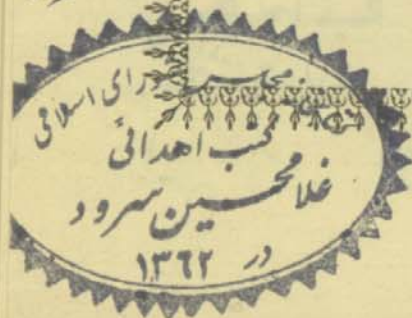 مجلس شورای اسلامی
کتب اهدائی
غلامحسین سرود
در ۱۳۶۲